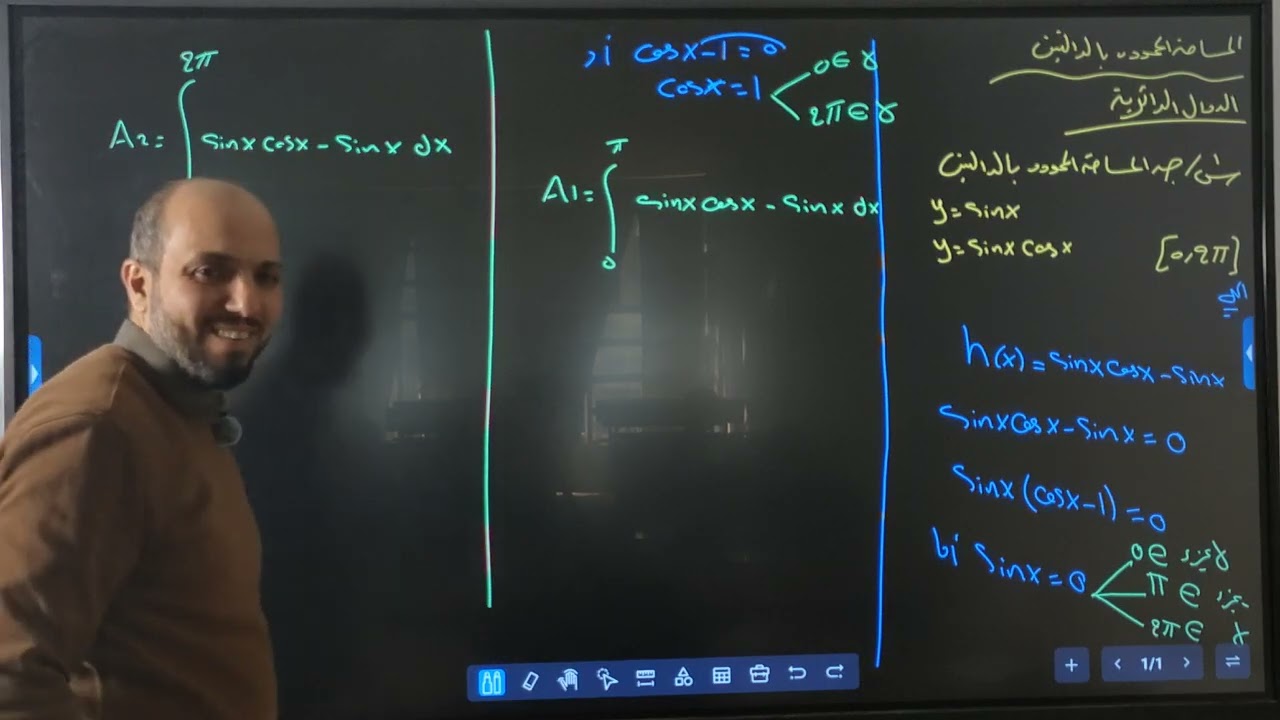 المساحة المحددة بالدالتين
الدوال الدائرية
س/ جد المساحة المحددة بالدالتين
y=sinx
y=sinx cosx [0,2π]
h(x)=sinx cosx-sinx
sinx cosx-sinx=0
sinx(cosx-1)=0
اما sinx=0
0∈ لا يجزء
π∈ يجزء
2π∈ لا
او cosx-1=0
cosx=1
0∈ لا
2π∈ لا
A1=∫ sinx cosx-sinx dx
π
0
2π
A2=∫ sinx cosx-sinx dx
1/1